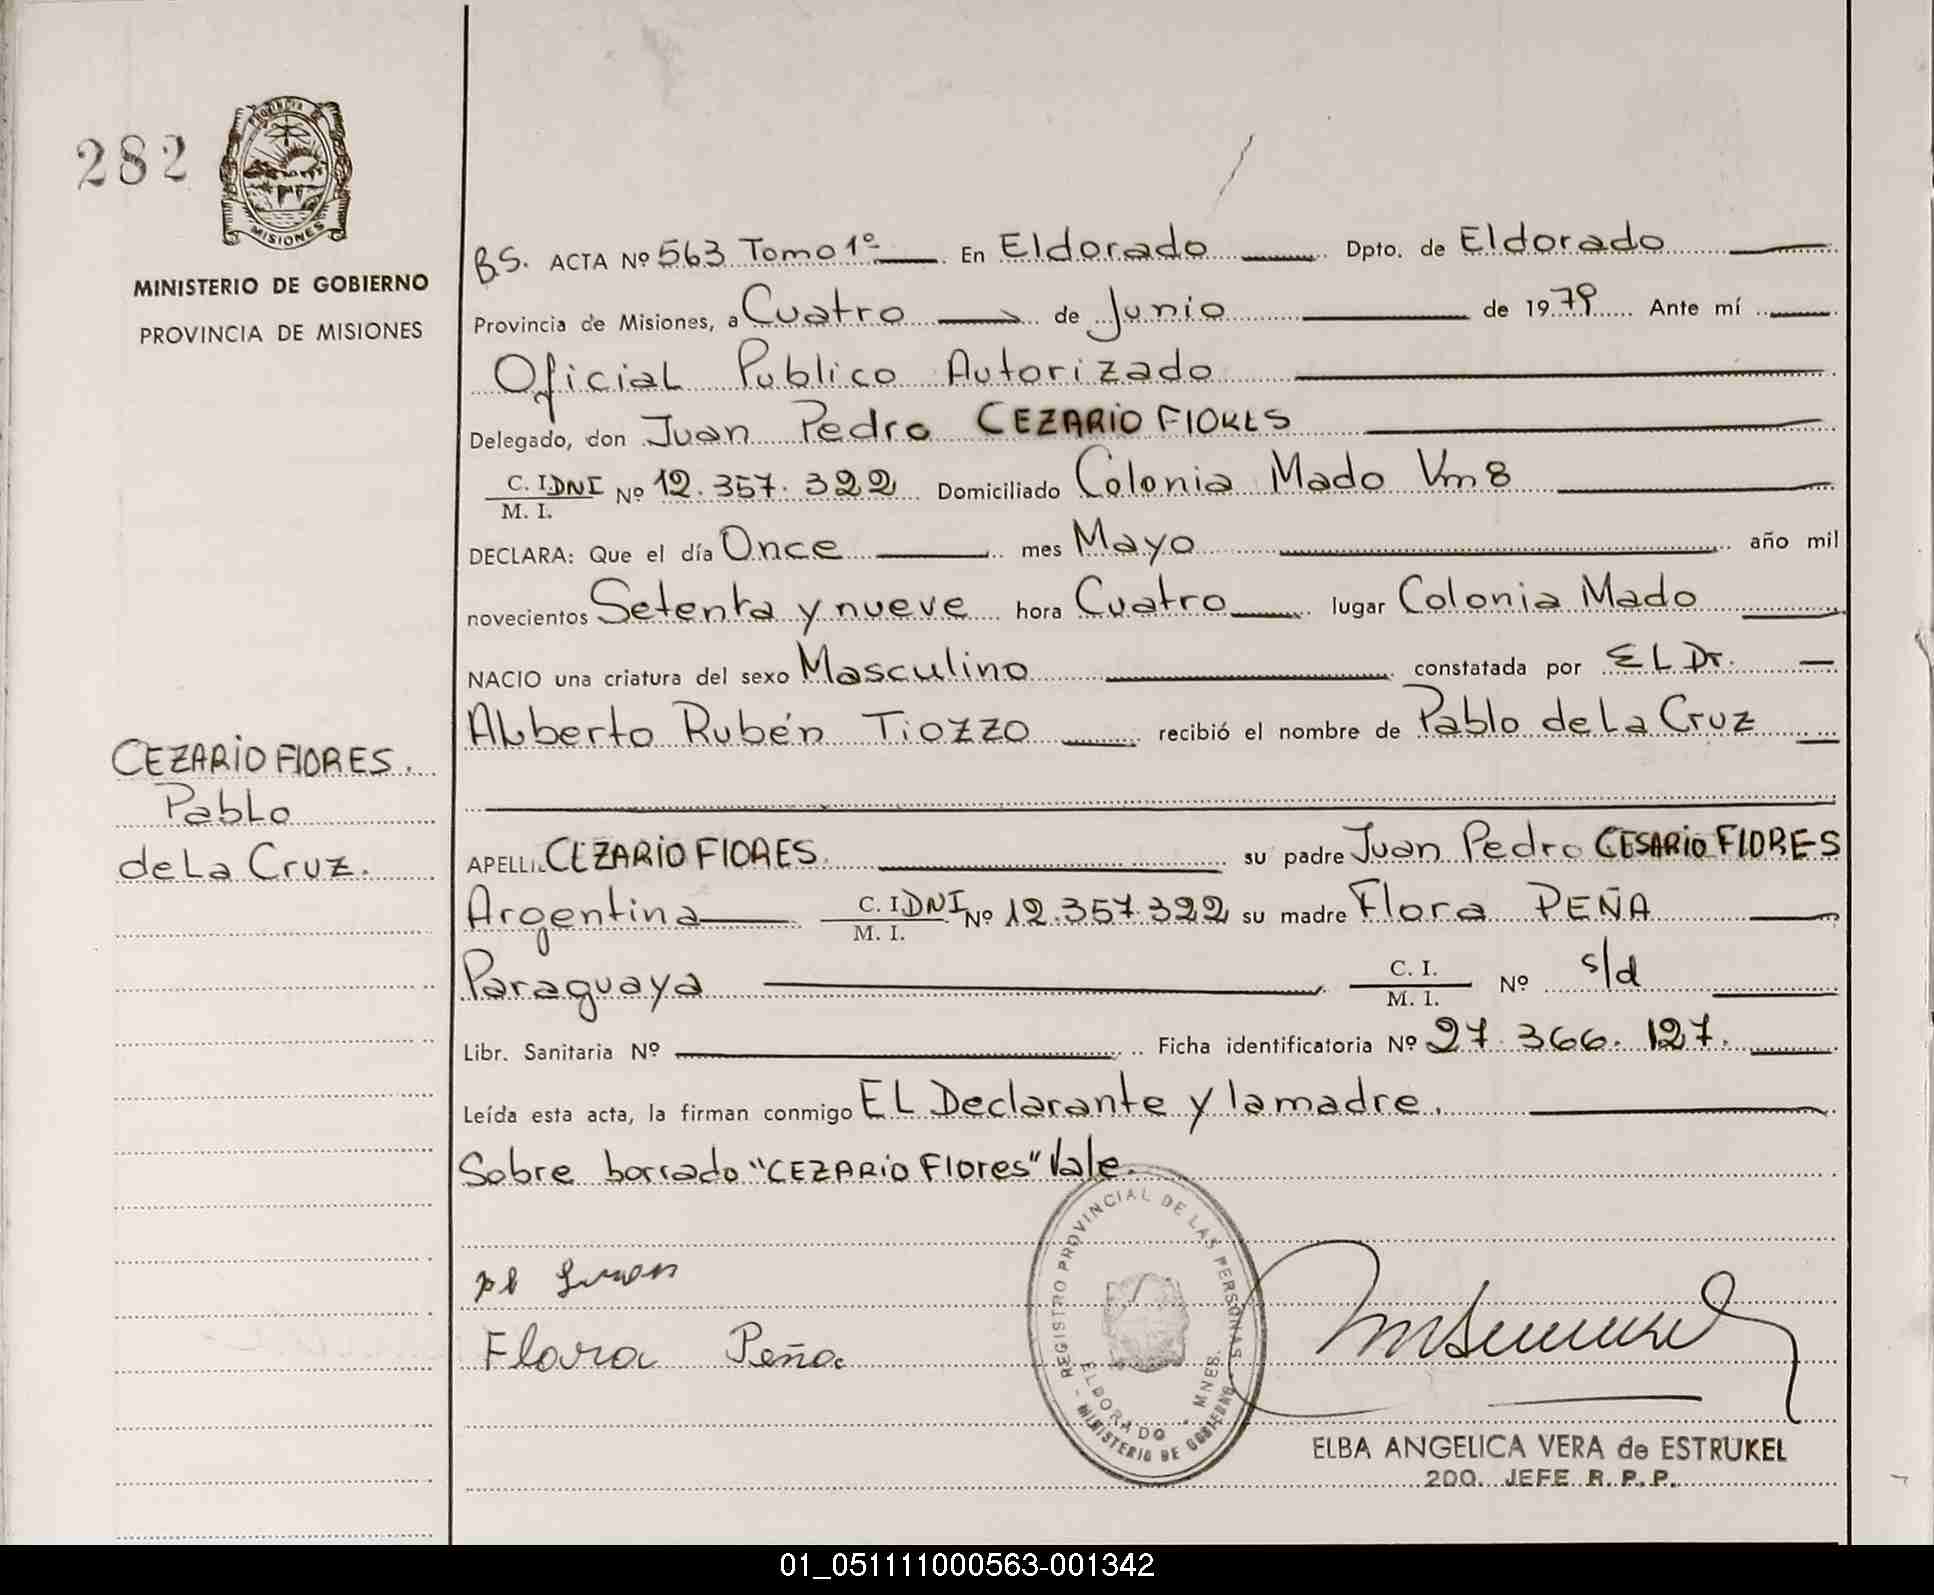 282
PROVINCIA
MISIONES
MINISTERIO DE GOBIERNO
PROVINCIA DE MISIONES
BS. ACTA Nº 563 Tomo 1º En Eldorado Dpto. de Eldorado
Provincia de Misiones, a Cuatro de Junio de 1979 Ante mí
Oficial Publico Autorizado
Delegado, don Juan Pedro CEZARIO FlORES
C. I. DNI Nº 12.357.322 Domiciliado Colonia Mado Km 8
M. I.
DECLARA: Que el día Once mes Mayo año mil
novecientos Setenta y nueve hora Cuatro lugar Colonia Mado
NACIO una criatura del sexo Masculino constatada por EL Dr.
ALberto Rubén TIOZZO recibió el nombre de Pablo de La Cruz
CEZARIO FlORES.
PabLo
de La Cruz.
APELLI. CEZARIO FlORES su padre Juan Pedro CESARIO FLORES
Argentina C. I. DNI Nº 12.357.322 su madre Flora PEÑA
M. I.
Paraguaya C. I. Nº s/d
M. I.
Libr. Sanitaria Nº Ficha identificatoria Nº 27.366.127.
Leída esta acta, la firman conmigo EL Declarante y la madre.
Sobre borrado "CEZARIO Flores" Vale.
Flora Peña
REGISTRO PROVINCIAL DE LAS PERSONAS
ELDORADO - MNES.
MINISTERIO DE GOBIERNO
ELBA ANGELICA VERA de ESTRUKEL
2DO. JEFE R. P. P.
01_051111000563-001342